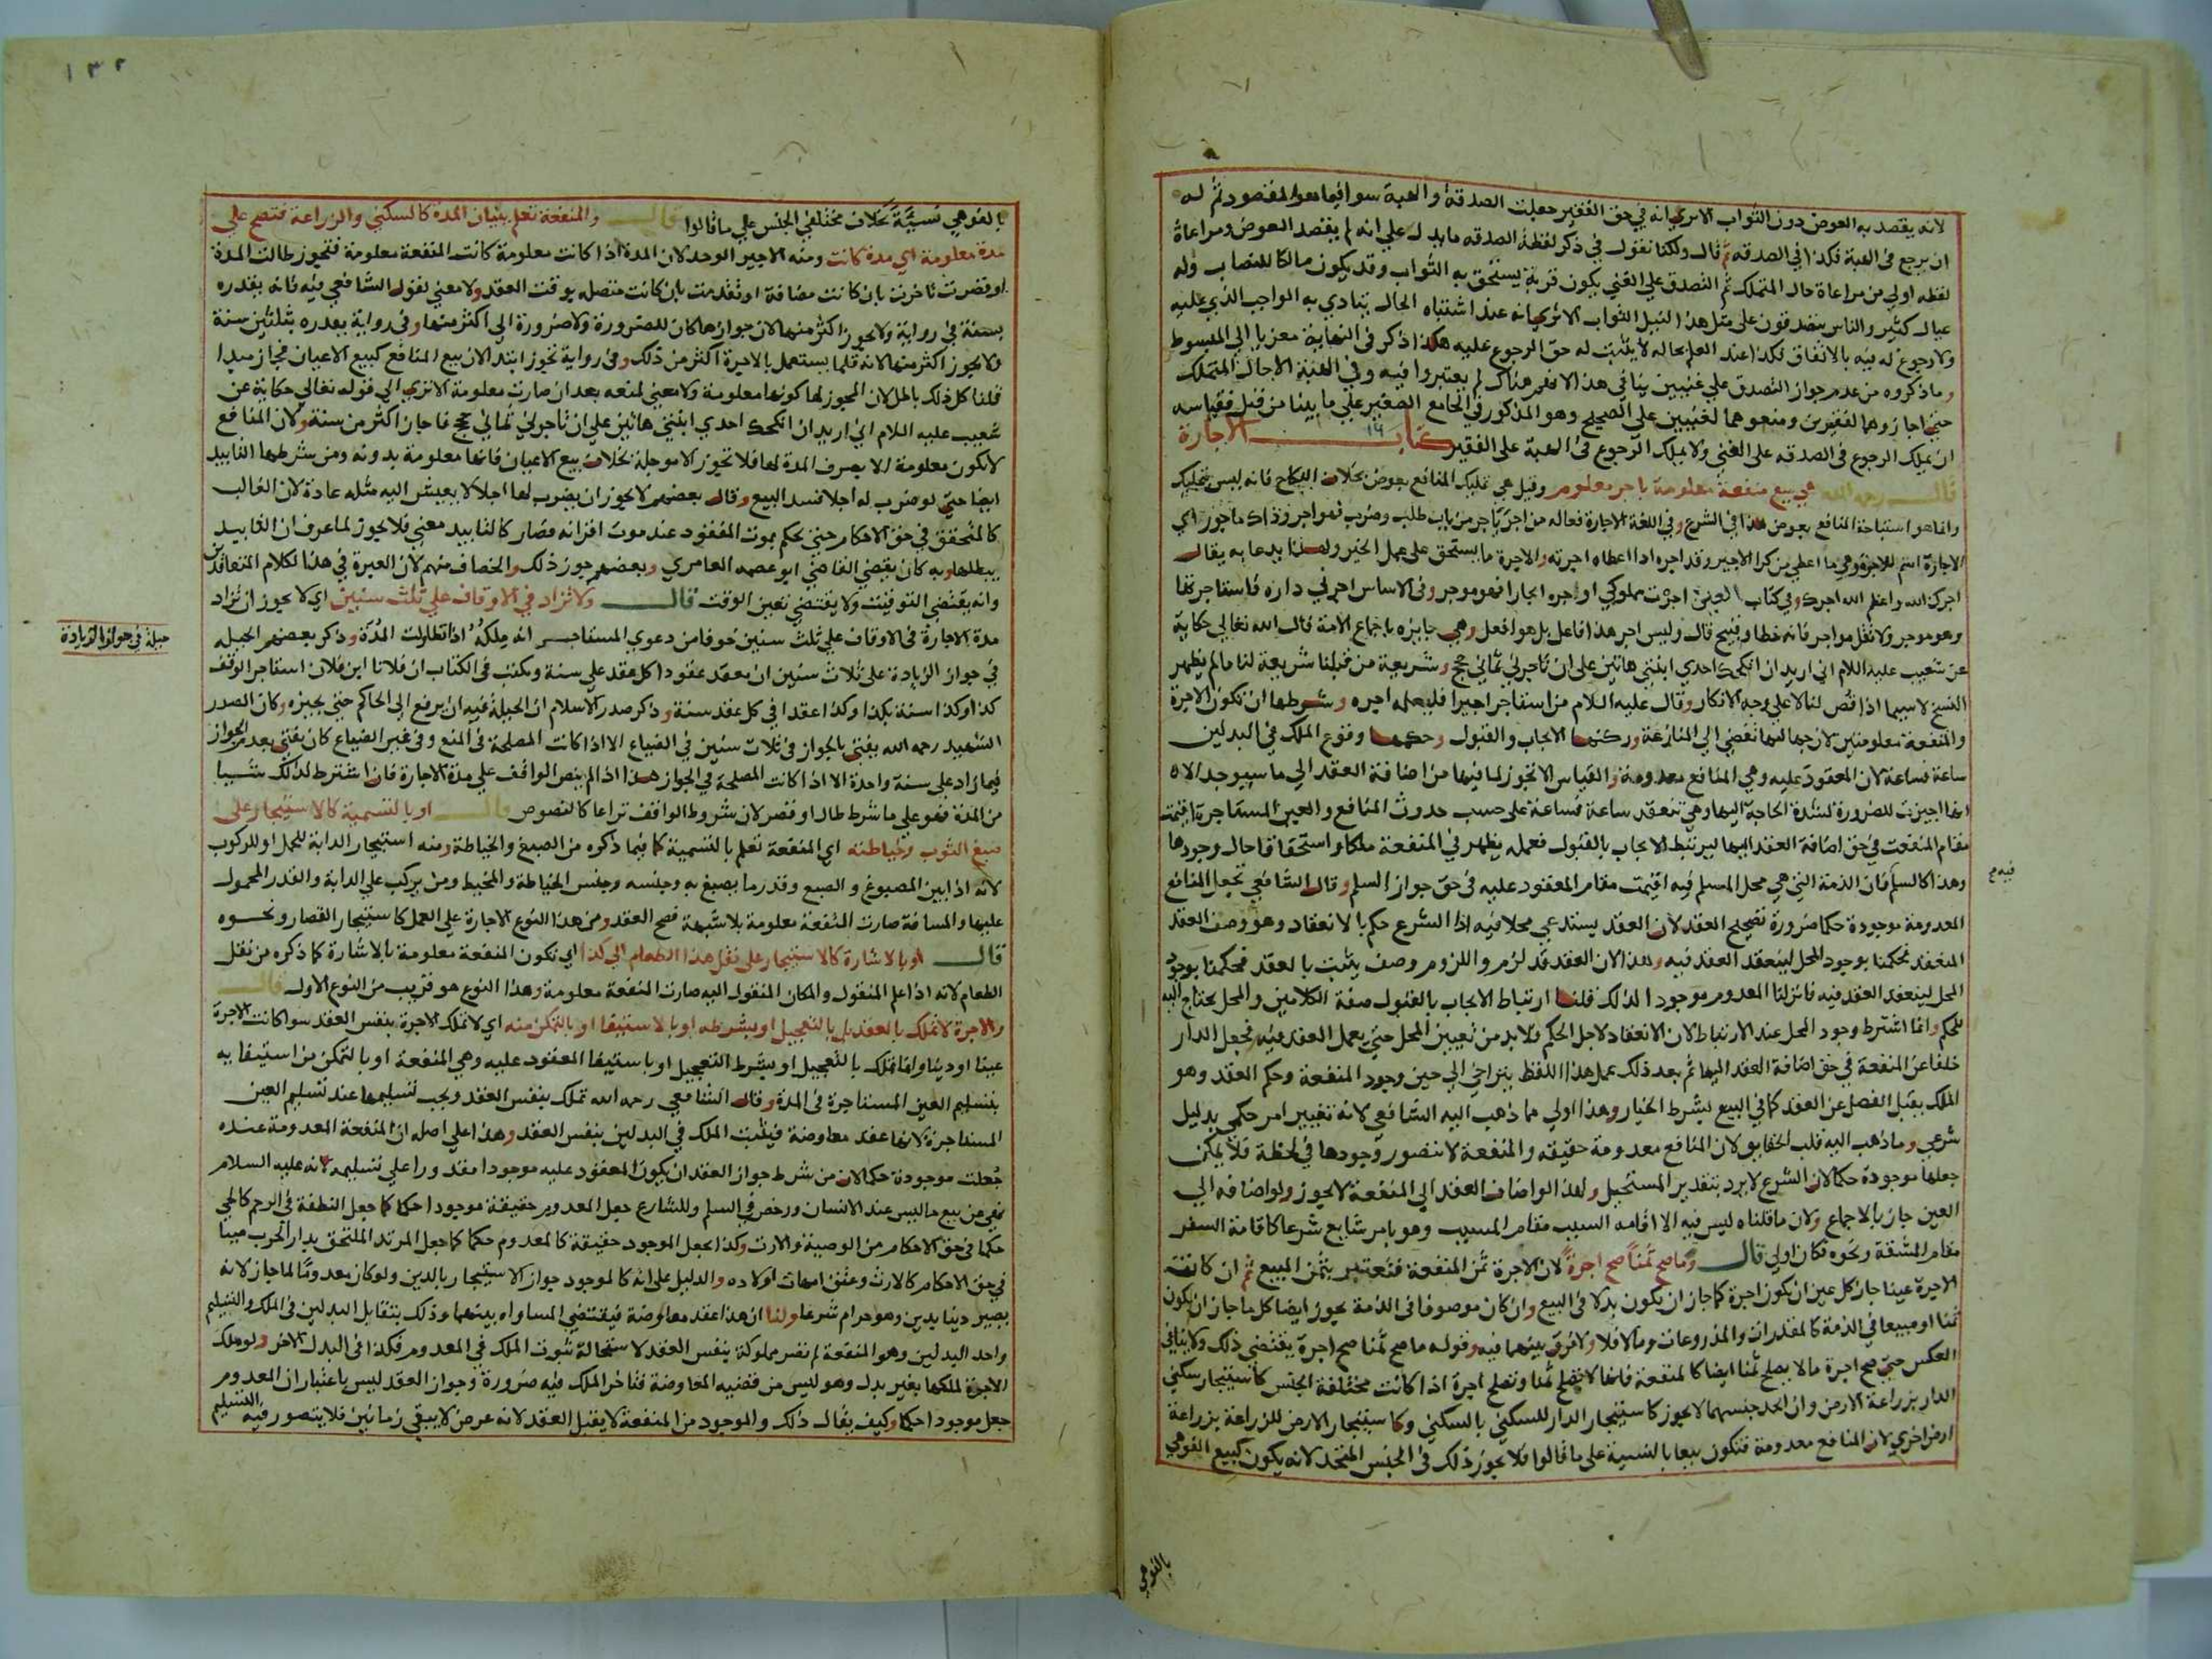 لانه يقصد به العوض دون الثواب الا يري انه في حق الفقير جعلت الصدقة والهبة سوا فيما هو المقصود ثم له
ان يرجع في الهبة فكذا في الصدقه ثم قال ولكنا نقول في ذكر لفظة الصدقه ما يدل علي انه لم يقصد العوض ومراعاة
لفظه اولي من مراعاة حال المتملك ثم التصدق علي الغني يكون قربة يستحق به الثواب وقد يكون مالكا للنصاب وله
عيال كثير والناس يتصدقون على مثل هذا لنيل الثواب الا تري انه عند اشتباه الحال يتادي به الواجب الذي عليه
ولا رجوع له فيه بالاتفاق فكذا عند العلم بحاله لا يثبت له حق الرجوع عليه هكذا ذكر في النهاية معزيا الي المبسوط
وما ذكروه من عدم جواز التصدق علي غنيين ينافي هذا لانهم هناك لم يعتبروا فيه وفي الهبة الا حال المتملك
حتي اجازوهما لفقيرين ومنعوهما لغنيين على الصحيح وهو المذكور في الجامع الصغير علي ما بينا من قبل فقياسه
ان يملك الرجوع في الصدقه على الغني ولا يملك الرجوع في الهبة على الفقير كتاب الاجارة
قال رحمه الله هي بيع منفعة معلومة باجر معلوم وقيل هي تمليك المنافع بعوض بخلاف النكاح فانه ليس بتمليك
وانما هو استباحة المنافع بعوض هذا في الشرع وفي اللغة الاجارة فعاله من اجر ياجر من باب طلب وضرب فهو اجر وذاك ماجور اي
الاجارة اسم للاجرة وهي ما اعطي من كرا الاجير وقد اجره اذا اعطاه اجرته والاجرة ما يستحق على عمل الخير ولهذا يدعا به يقال
اجرك الله واعظم الله اجرك وفي كتاب العين اجرت مملوكي اوجره ايجارا فهو موجر وفي الاساس اجرني داره فاستاجرتها
وهو موجر ولا تقل مواجر فانه خطا وقبيح قال وليس اجر هذا فاعل بل هو افعل وهي جايزه باجماع الامة قال الله تعالي حكاية
عن شعيب عليه السلام اني اريد ان انكحك احدي ابنتي هاتين على ان تاجرني ثماني حجج وشريعة من قبلنا شريعة لنا ما لم يظهر
النسخ لا سيما اذا قص لنا لا علي وجه الانكار وقال عليه السلام من استاجر اجيرا فليعلمه اجره وشرطها ان تكون الاجرة
والمنفعة معلومتين لان جهالتهما تفضي الي المنازعة وركنها الايجاب والقبول وحكمها وقوع الملك في البدلين
ساعة فساعة لان المعقود عليه وهي المنافع معدومة والقياس الا تجوز لما فيها من اضافة العقد الي ما سيوجد الا
انها اجيزت للضرورة لشدة الحاجة اليها وهي تنعقد ساعة فساعة على حسب حدوث المنافع والعين المستاجرة اقيمت
مقام المنفعة في حق اضافة العقد اليها ليرتبط الايجاب بالقبول فعمله يظهر في المنفعة ملكا واستحقاقا حال وجودها
وهذا كالسلم فان الذمة التي هي محل المسلم فيه اقيمت مقام المعقود عليه في حق جواز السلم وقال الشافعي تجعل المنافع
المعدومة موجودة حكما ضرورة تصحيح العقد لان العقد يستدعي محلا فيه اذا الشرع حكم بالانعقاد وهو وصف العقد
المنعقد فحكمنا بوجود المحل لينعقد العقد فيه وهذا لان العقد قد لزم واللزوم وصف يثبت بالعقد فحكمنا بوجود
المحل لينعقد العقد فيه فانزلنا المعدوم موجودا لذلك قلنا ارتباط الايجاب بالقبول صفة الكلامين والمحل يحتاج اليه
للحكم وانما اشترط وجود المحل عند الارتباط لان الانعقاد لاجل الحكم فلا بد من تعيين المحل حتي يعمل العقد فيه فجعل الدار
خلفا عن المنفعة في حق اضافة العقد اليها ثم بعد ذلك عمل هذا اللفظ يتراخي الي حين وجود المنفعة وحكم العقد وهو
الملك يقبل الفصل عن العقد كما في البيع بشرط الخيار وهذا اولي مما ذهب اليه الشافعي لانه تغيير امر حكمي بدليل
شرعي وما ذهب اليه قلب الحقايق لان المنافع معدومة حقيقه والمنفعة لا يتصور وجودها في لحظة فلا يمكن
جعلها موجودة حكما لان الشرع لا يرد بتقدير المستحيل ولهذا لو اضاف العقد الي المنفعة لا يجوز ولو اضافه الي
العين جاز بالاجماع ولان ما قلناه ليس فيه الا اقامه السبب مقام المسبب وهو باب شايع شرعا كاقامة السفر
مقام المشقة ونحوه فكان اولي قال وما صح ثمنا صح اجرة لان الاجرة ثمن المنفعة فتعتبر بثمن المبيع ثم ان كانت
الاجرة عينا جاز كل عين ان يكون اجرة كما جاز ان يكون بدلا في البيع وان كان موصوفا في الذمة يجوز ايضا كل ما جاز ان يكون
ثمنا او مبيعا في الذمة كالمقدرات والمذروعات وما لا فلا ولا فرق بينهما فيه وقوله ما صح ثمنا صح اجرة يقتضي ذلك ولا ينافي
العكس حتي صح اجرة ما لا يصلح ثمنا ايضا كالمنفعة فانها لا تصلح ثمنا وتصلح اجرة اذا كانت مختلفة الجنس كاستيجار سكني
الدار بزراعة الارض وان اتحد جنسهما لا يجوز كاستيجار الدار للسكني بالسكني وكاستيجار الارض للزراعة بزراعة
ارض اخري لان المنافع معدومة فتكون بيعا بالنسية على ما قالوا فلا يجوز ذلك في الجنس المتحد لانه يكون كبيع القوهي
بالقوهي
فيه م
١٣٢
بالقوهي نسيئة بخلاف مختلفي الجنس علي ما قالوا قال والمنفعة تعلم ببيان المدة كالسكني والزراعة فتصح علي
مدة معلومة اي مدة كانت ومنه الاجير الوحد لان المدة اذا كانت معلومة كانت المنفعة معلومة فتجوز طالت المدة
او قصرت تاخرت بان كانت مضافة او تقدمت بان كانت متصله بوقت العقد ولا معني لقول الشافعي فيه فانه يقدره
بسنة في رواية ولا يجوز اكثر منها لان جوازها كان للضرورة ولا ضرورة الي اكثر منها وفي رواية يقدره بثلثين سنة
ولا يجوز اكثر منها لانه قلما يستعمل بالاجرة اكثر من ذلك وفي رواية تجوز ابدا لان بيع المنافع كبيع الاعيان فجاز مبدا
قلنا كل ذلك باطل لان المجوز لها كونها معلومة ولا معني لمنعه بعد ان صارت معلومة الا تري الي قوله تعالي حكاية عن
شعيب عليه السلام اني اريد ان انكحك احدي ابنتي هاتين علي ان تاجرني ثماني حجج فاجاز اكثر من سنة ولان المنافع
لا تكون معلومة الا بصرف المدة لها فلا تجوز الا موجلة بخلاف بيع الاعيان فانها معلومة بدونه ومن شرطها التابيد
ايضا حتي لو ضرب له اجلا فسد البيع وقال بعضهم لا يجوز ان يضرب لها اجلا لا يعيش اليه مثله عادة لان الغالب
كالمتحقق في حق الاحكام حتي يحكم بموت المفقود عند موت اقرانه فصار كالتابيد معني فلا يجوز لما عرف ان التابيد
يبطلها وبه كان يقضي القاضي ابو عصمه العامري وبعضهم جوز ذلك والخصاف منهم لان العبرة في هذا لكلام المتعاقدين
وانه يقتضي التوقيت ولا يقتضي تعين الوقت قال ولا تزاد في الاوقاف علي ثلث سنين اي لا يجوز ان تزاد
مدة الاجارة في الاوقاف علي ثلث سنين خوفا من دعوي المستاجر انه ملكه اذا تطاولت المدة وذكر بعضهم الحيله
في جواز الزيادة على ثلاث سنين ان يعقد عقودا كل عقد علي سنة ويكتب في الكتاب ان فلانا ابن فلان استاجر الوقف
كذا وكذا سنة بكذا وكذا عقدا في كل عقد سنة وذكر صدر الاسلام ان الحيلة فيه ان يرفع الي الحاكم حتي يجيزه وكان الصدر
الشهيد رحمه الله يفتي بالجواز في ثلاث سنين في الضياع الا اذا كانت المصلحة في المنع وفي غير الضياع كان يفتي بعدم الجواز
فيما زاد على سنة واحدة الا اذا كانت المصلحة في الجواز هذا اذا لم ينص الواقف على مدة الاجارة فان اشترط لذلك شيئا
من المدة فهو علي ما شرط طال او قصر لان شروط الواقف تراعا كالنصوص قال او بالتسمية كالاستيجار على
صبغ الثوب وخياطته اي المنفعة تعلم بالتسمية كما فيما ذكره من الصبغ والخياطة ومنه استيجار الدابة للحمل او للركوب
لانه اذا بين المصبوغ والصبغ وقدر ما يصبغ به وجنسه وجنس الخياطة والمخيط ومن يركب علي الدابة والقدر المحمول
عليها والمسافة صارت المنفعة معلومة بلا شبهة فصح العقد ومن هذا النوع الاجارة علي العمل كاستيجار القصار ونحوه
قال او بالاشارة كالاستيجار على نقل هذا الطعام الى كذا اي تكون المنفعة معلومة بالاشارة كما ذكره من نقل
الطعام لانه اذا علم المنقول والمكان المنقول اليه صارت المنفعة معلومة وهذا النوع هو قريب من النوع الاول قال
والاجرة لا تملك بالعقد بل بالتعجيل او بشرطه او بالاستيفا او بالتمكن منه اي لا تملك الاجرة بنفس العقد سوا كانت الاجرة
عينا او دينا وانما تملك بالتعجيل او بشرط التعجيل او باستيفا المعقود عليه وهي المنفعة او بالتمكن من استيفايه
بتسليم العين المستاجرة في المدة وقال الشافعي رحمه الله تملك بنفس العقد ويجب تسليمها عند تسليم العين
المستاجرة لانها عقد معاوضة فيثبت الملك في البدلين بنفس العقد وهذا علي اصله ان المنفعة المعدومة عنده
جعلت موجودة حكما لان من شرط جواز العقد ان يكون المعقود عليه موجودا مقدورا علي تسليمه لانه عليه السلام
نهي عن بيع ما ليس عند الانسان ورخص في السلم وللشارع جعل المعدوم حقيقة موجودا حكما كما جعل النطفة في الرحم كالحي
حكما في حق الاحكام من الوصية والارث وكذا يجعل الموجود حقيقة كالمعدوم حكما كما جعل المرتد الملتحق بدار الحرب ميتا
في حق الاحكام كالارث وعتق امهات اولاده والدليل على انه كالموجود جواز الاستيجار بالدين ولو كان معدوما لما جاز لانه
يصير دينا بدين وهو حرام شرعا ولنا ان هذا عقد معاوضة فيقتضي المساواه بينهما وذلك بتقابل البدلين في الملك والتسليم
واحد البدلين وهو المنفعة لم تصر مملوكة بنفس العقد لاستحالة ثبوت الملك في المعدوم فكذا في البدل الاخر ولو ملك
الاجرة لملكها بغير بدل وهو ليس من قضيه المعاوضة فتاخر الملك فيه ضرورة وجواز العقد ليس باعتبار ان المعدوم
جعل موجودا حكما وكيف يقال ذلك والموجود من المنفعة لا يقبل العقد لانه عرض لا يبقي زمانين فلا يتصور فيه التسليم
حيلة في جواز الزيادة